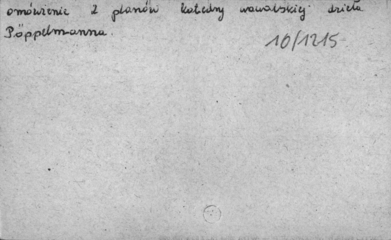 omówienie 2 planów katedry wawelskiej dzieła
Pöppelmanna.
10/1215